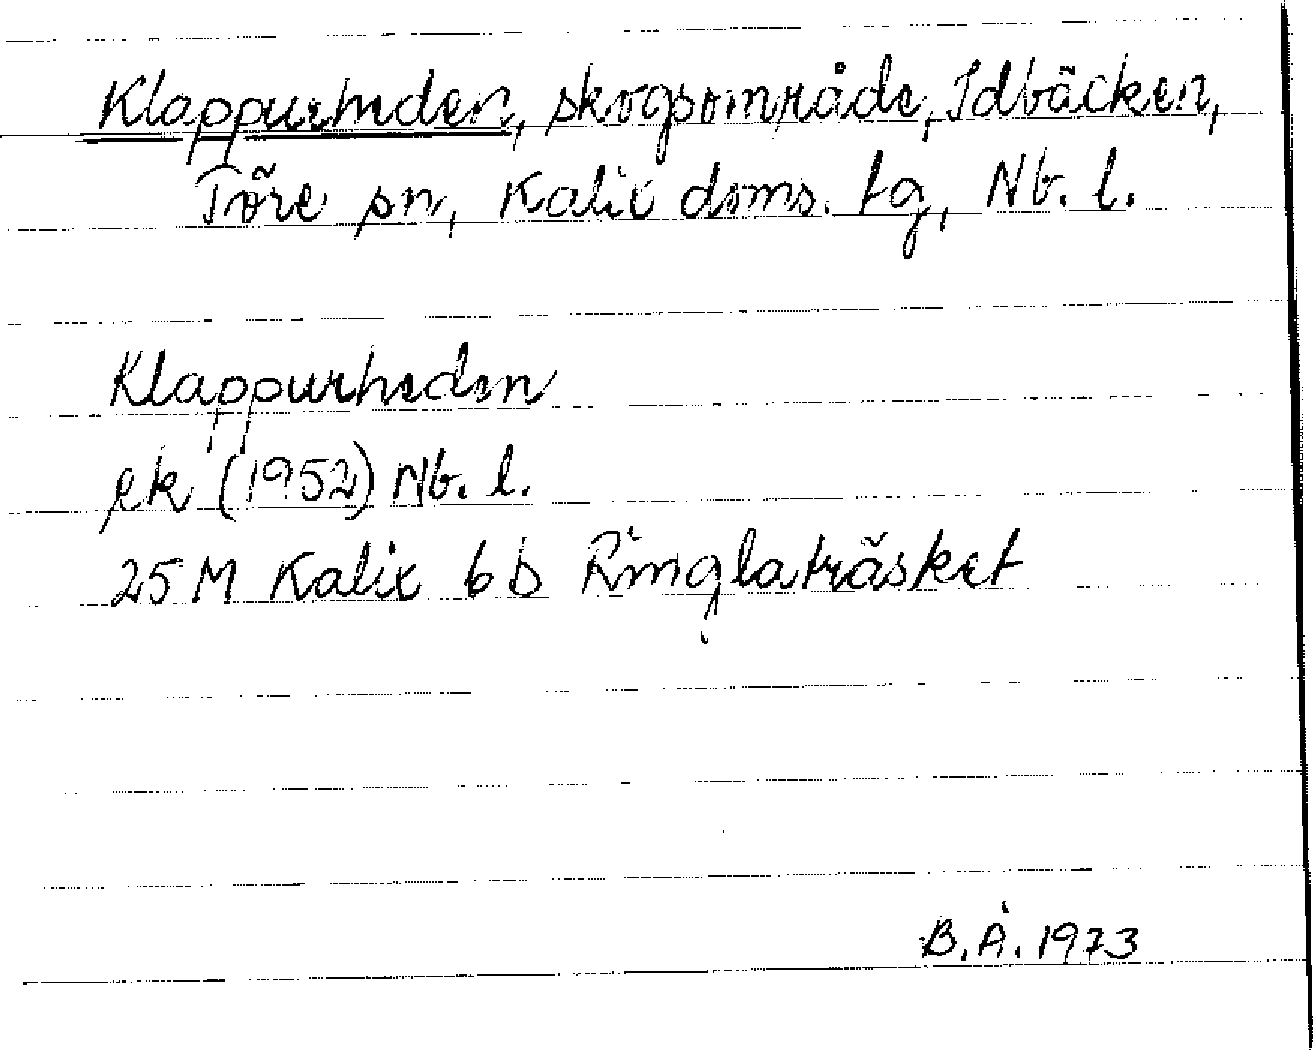 Klappurheden, skogsområde, Idbäcken,
Töre sn, Kalix doms. tg, Nb. l.
Klappurheden
ek (1952) Nb. l.
25 M Kalix 6 b Ringlaträsket
B. Å. 1973